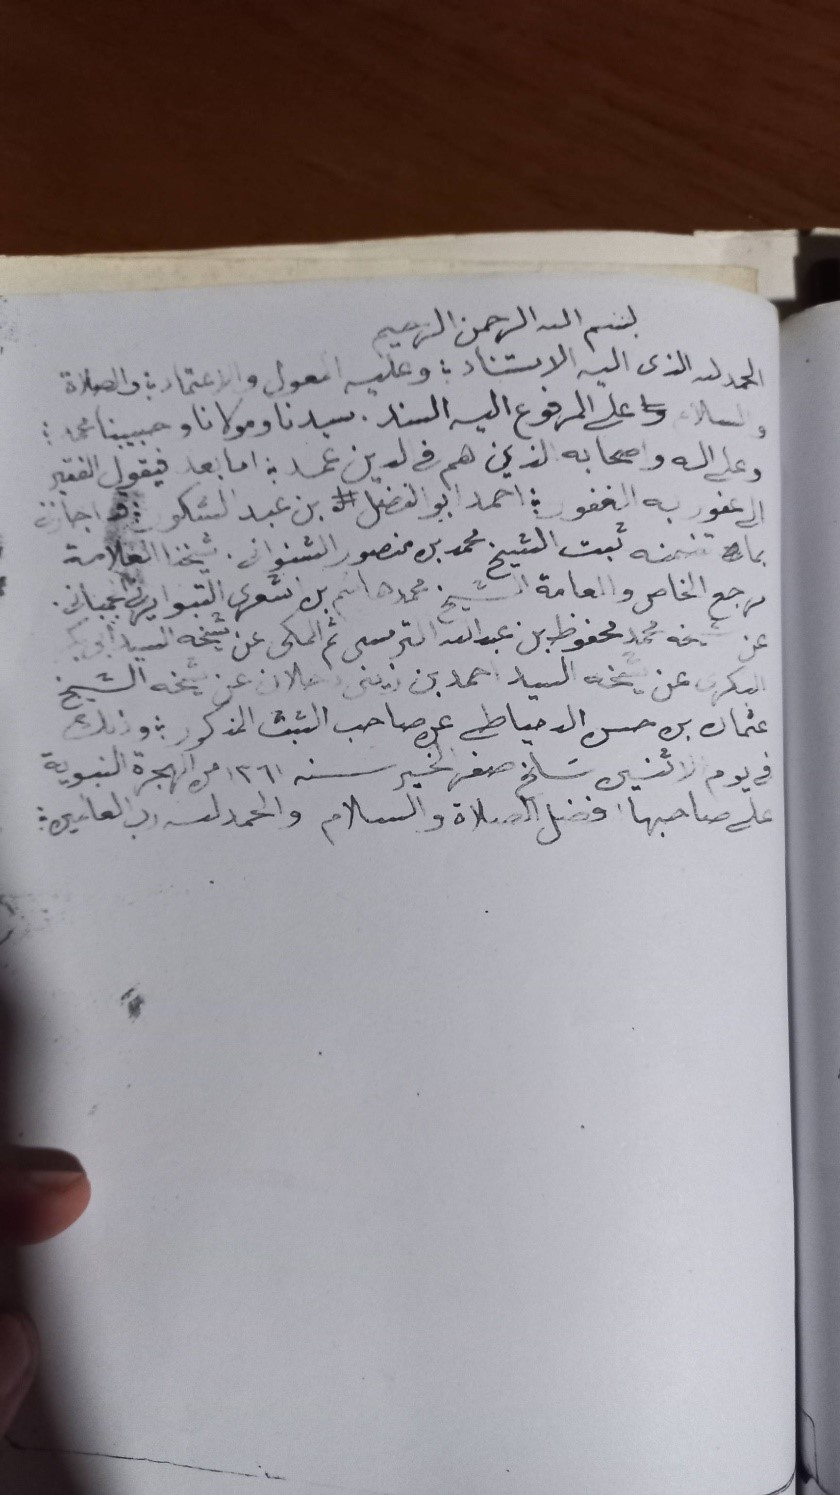 بسم الله الرحمن الرحيم
الحمد لله الذى اليه الاستناد ؛ وعليه المعول والاعتماد ؛ والصلاة
والسلام على المرفوع اليه السند . سيدنا ومولانا وحبيبنا محمد ؛
وعلى اله واصحابه الذين هم فى الدين عمد ؛ اما بعد فيقول الفقير
الى عفو ربه الغفور ؛ احمد ابو الفضل # بن عبد الشكور ؛ قد اجازنى
بما تضمنه ثبت الشيخ محمد بن منصور الشنوانى . شيخنا العلامة
مرجع الخاص والعامة الشيخ محمد هاشم بن اشعرى التبوايرنى الجمبانى .
عن شيخه محمد محفوظ بن عبد الله الترمسى ثم المكى عن شيخه السيد ابى بكر
البكرى عن شيخه السيد احمد بن زينى دحلان عن شيخه الشيخ
عثمان بن حسن الدمياطى عن صاحب الثبت المذكور ؛ وذلك
فى يوم الاثنين سلخ صفر الخير سنه ١٣٦١ من الهجرة النبوية
على صاحبها افضل الصلاة والسلام والحمد لله رب العالمين ؛